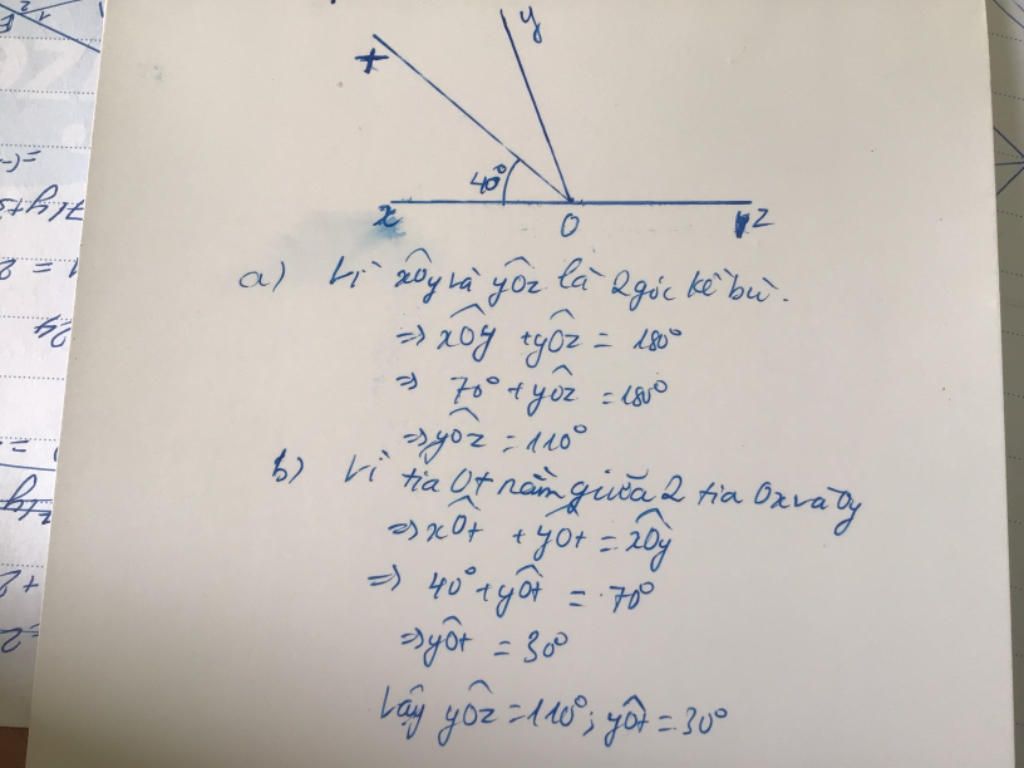 y
t
40°
x
O
z
a) Vì xÔy và yÔz là 2 góc kề bù.
=> xÔy + yÔz = 180°
=> 70° + yÔz = 180°
=> yÔz = 110°
b) Vì tia Ot nằm giữa 2 tia Ox và Oy
=> xÔt + yÔt = xÔy
=> 40° + yÔt = 70°
=> yÔt = 30°
Vậy yÔz = 110°; yÔt = 30°